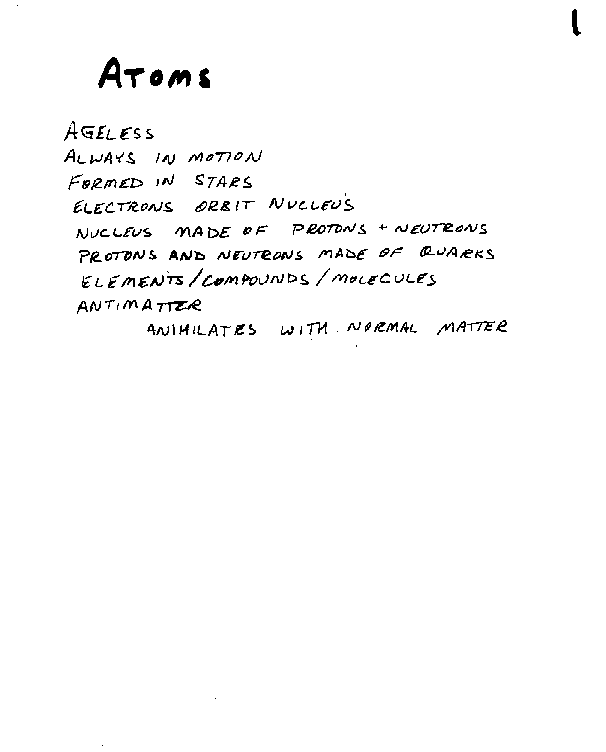 1
ATOMS
AGELESS
ALWAYS IN MOTION
FORMED IN STARS
ELECTRONS ORBIT NUCLEUS
NUCLEUS MADE OF PROTONS + NEUTRONS
PROTONS AND NEUTRONS MADE OF QUARKS
ELEMENTS/COMPOUNDS/MOLECULES
ANTIMATTER
ANIHILATES WITH NORMAL MATTER